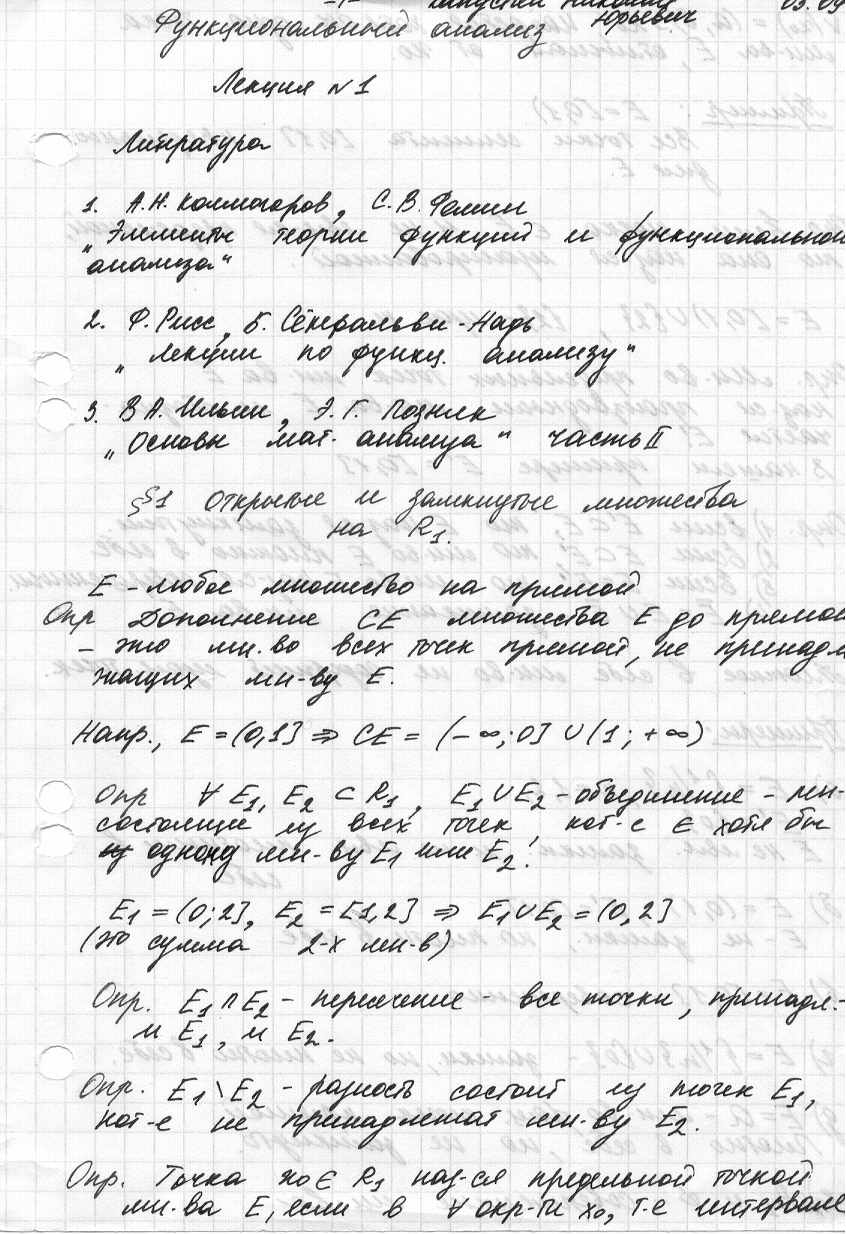 -1-
Юрьевич
Функциональный анализ
Лекция №1
Литература
1. А.Н. Колмогоров, С.В. Фомин
„Элементы теории функций и функциональной
анализа"
2. Ф. Рисс, Б. Сёкефальви-Надь
„Лекции по функц. анализу"
3. В А. Ильин, Э. Г. Позняк
„Основы мат. анализа" часть II
§1 Открытые и замкнутые множества
на R₁.
E - любое множество на прямой
Опр Дополнение CE множества E до прямой
- это мн-во всех точек прямой, не принадл
жащих мн-ву E.
Напр., E = (0,1] ⇒ CE = (-∞;0] ∪ (1;+∞)
Опр ∀ E₁, E₂ ⊂ R₁, E₁∪E₂ - объединение - мн-
состоящее из всех точек, кот-е ∈ хотя бы
одному мн-ву E₁ или E₂.
E₁ = (0;2], E₂ = [1,2] ⇒ E₁∪E₂ = (0,2]
(это сумма 2-х мн-в)
Опр. E₁∩E₂ - пересечение - все точки, принадл.-
и E₁, и E₂.
Опр. E₁\E₂ - разность состоит из точек E₁,
кот-е не принадлежат мн-ву E₂.
Опр. Точка x₀ ∈ R₁ наз-ся предельной точкой
мн-ва E, если в ∀ окр-ти x₀, т-е интервале